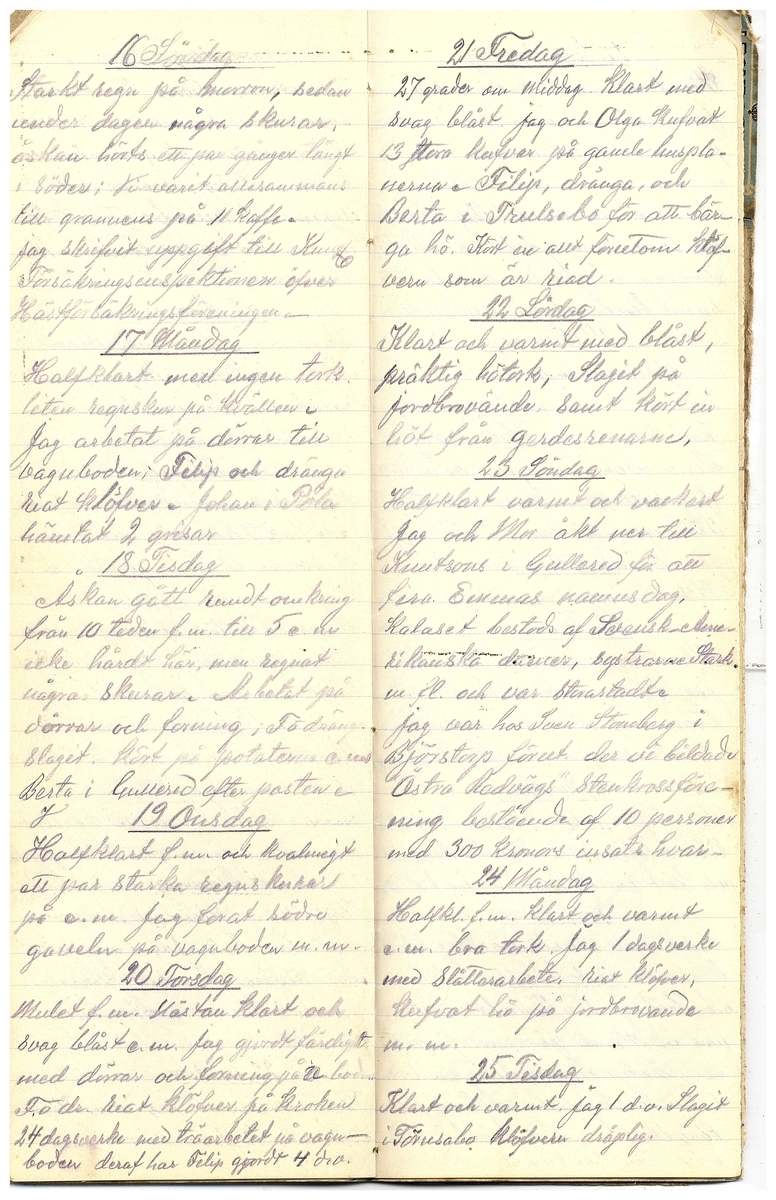 16 Söndag
Starkt regn på morron, sedan
under dagen några skurar,
åskan hörts ett par gånger långt
i söder; Vi varit allesammans
till grannens på 11 kaffe.
Jag skrifvit uppgift till Kungl
Försäkringsinspektionen öfver
Hästförsäkringsföreningen.
17 Måndag
Halfklart men ingen tork.
liten regnskur på kvällen.
Jag arbetat på dörrar till
vagnboden; Filip och dränga
riat klöfver. Johan i Pöla
hämtat 2 grisar
18 Tisdag
Åskan gått rundt omkring
från 10 tiden f.m. till 5 e.m
icke hårdt här, men regnat
några skurar. Arbetat på
dörrar och forning; F o dräng
slaget. Kört på potaterna e.m
Berta i Gullered efter posten
19 Onsdag
Halfklart f.m. och kvalmigt
ett par starka regnskurar
på e.m. jag forat södra
gaveln på vagnboden m.m.
20 Torsdag
Mulet f.m. Nästan klart och
svag blåst e.m. Jag gjordt färdigt
med dörrar och forning på v. bod
F. o dr. riat klöfver på kroken
24 dagsverke med träarbetet på vagn-
boden deraf har Filip gjordt 4 d.v.
21 Fredag
27 grader om middag. Klart med
svag blåst jag och Olga kufvat
13 stora kufvar på gamle huspla-
nerna. Filip, dränga, och
Berta i Trulsebo för att bär-
ga hö. Kört in allt förutom klöf-
vern som är riad.
22 Lördag
Klart och varmt med blåst,
präktig hötork, Slagit på
jordbrovände. samt kört in
höt från gerdesrenarne,
23 Söndag
Halfklart varmt och vackert
Jag och Mor åkt ner till
Knutsons i Gullered för att
fira Emmas namnsdag.
Kalaset bestods af Svensk-Ame-
rikanska damer, systrarne Stark.
m. fl. och var storastadt.
jag var hos Sven Stoneberg i
Björstorp förut. der vi bildade
"Östra Radvägs" Stenkrossföre-
ning bestående af 10 personer
med 300 kronors insats hvar-
24 Måndag
Halfkl. f.m. klart och varmt
e.m. bra tork. Jag 1 dagsverke
med Slåtterarbete, riat klöfver,
kufvat hö på jordbrovande
m. m.
25 Tisdag
Klart och varmt. jag 1 d.v. Slagit
i Törnsabo klöfvern dräplig.